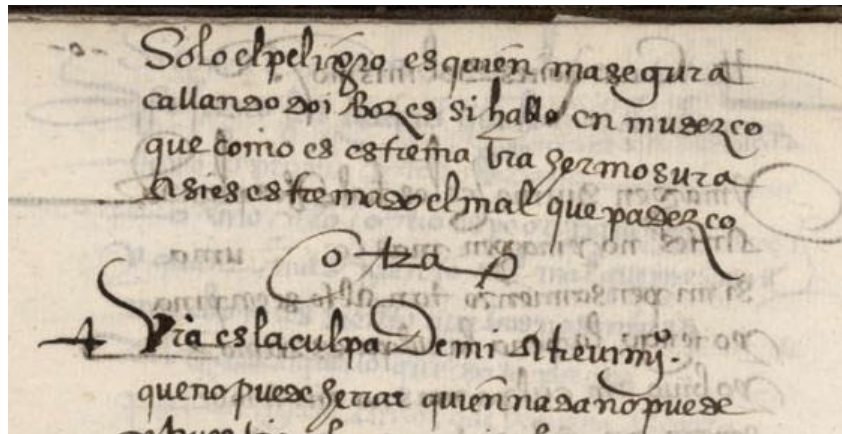 Solo el peligro es quien m asegura
callando doi bozes si hablo enmudezco
que como es estrema vra hermosura
asi es estremado el mal que padezco
otra
Vra es la culpa de mi atreuimyo.
que no puede herrar quien nada no puede